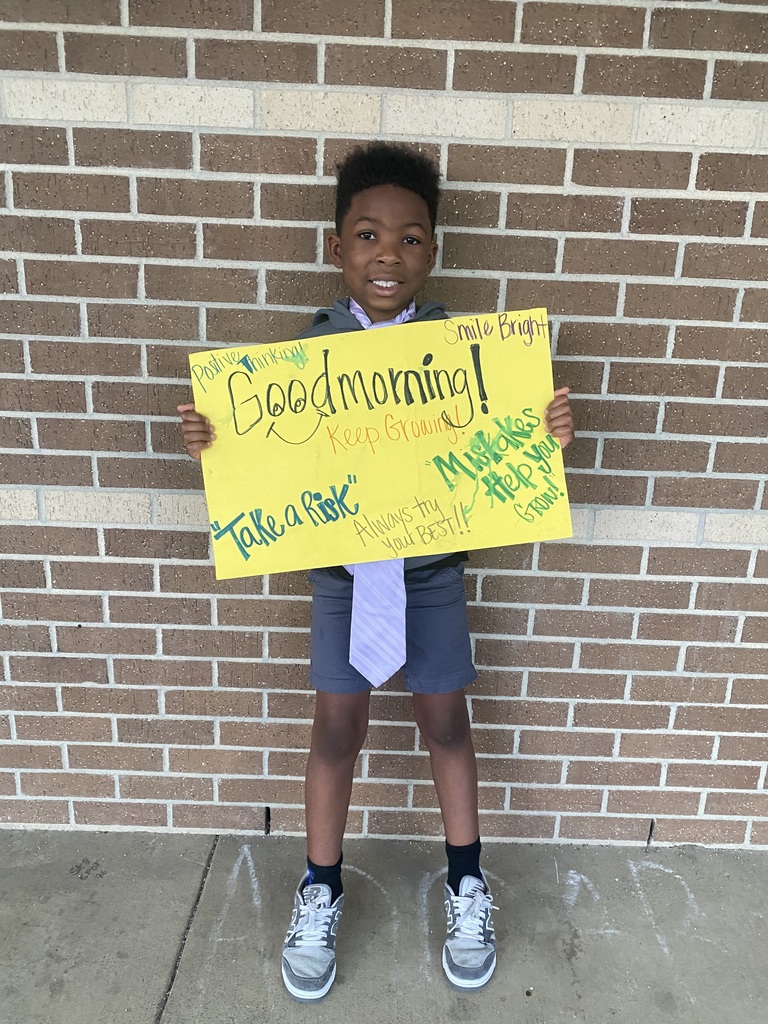 Positive Thinking!
Smile Bright
Goodmorning!
Keep Growing!
"Mistakes
Help You
GROW!
"Take a Risk"
Always try
your BEST!!